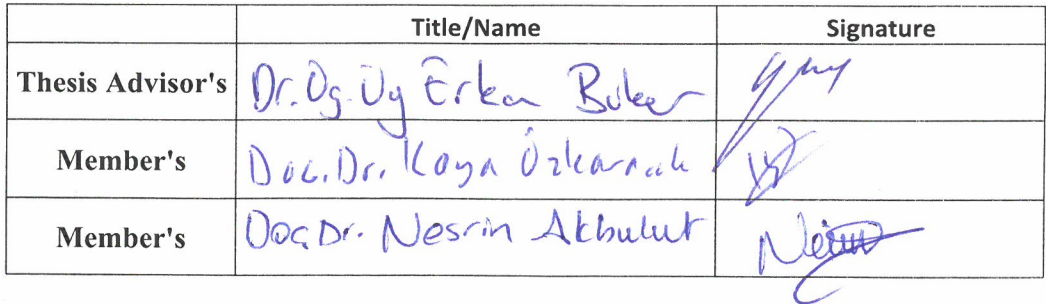 Title/Name Signature
Thesis Advisor's Dr. Öğ. Üy Erkan
Member's Doç. Dr. Kaya
Member's Doç. Dr. Nesrin Akbulut